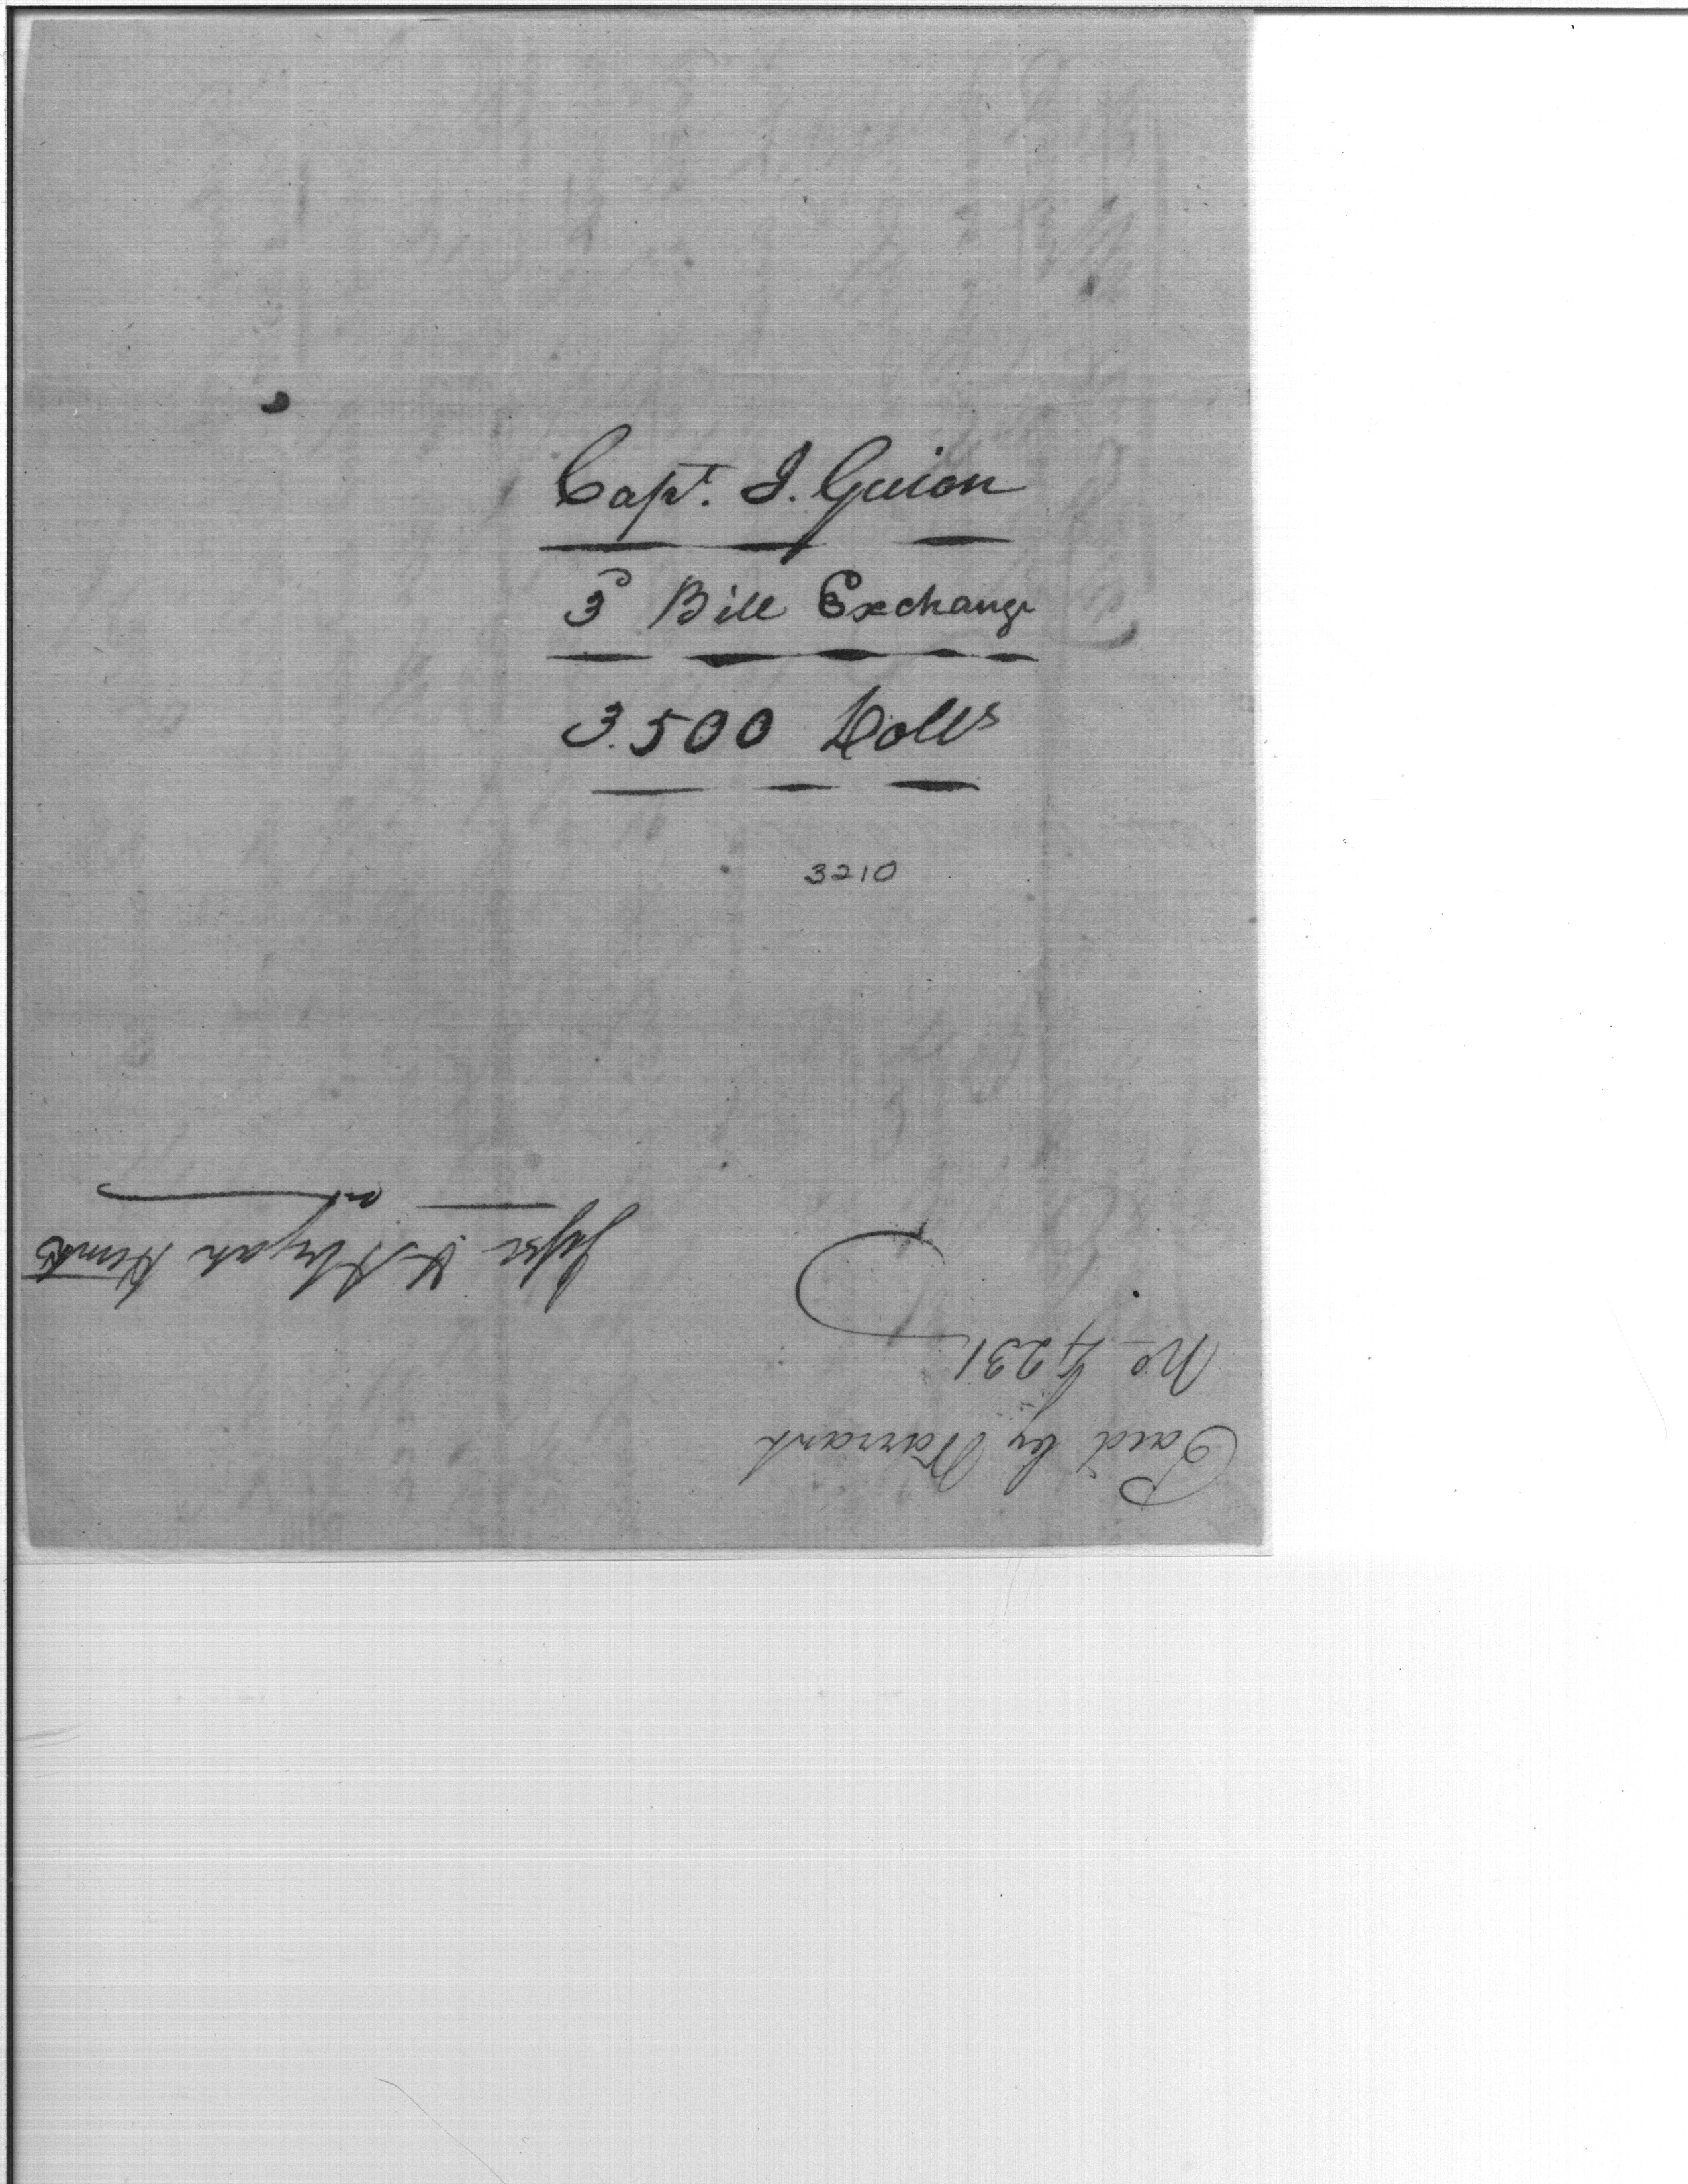 Capt. I. Guion
3d Bill Exchange
3.500 Dolls
3210
Paid by Warrant
No 4231
Jesse & Abijah Hunt